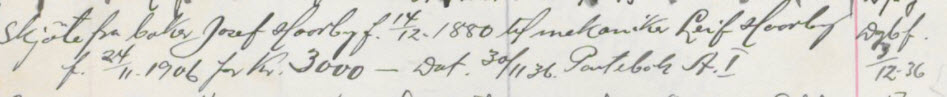 Skjøte fra baker Josef Hoorby f. 14/12-1880 til mekaniker Leif Hoorby Dgbf.
f. 24/11-1906 for Kr. 3000 — Dat. 30/11 36. Pantebok A.I 3/12-36